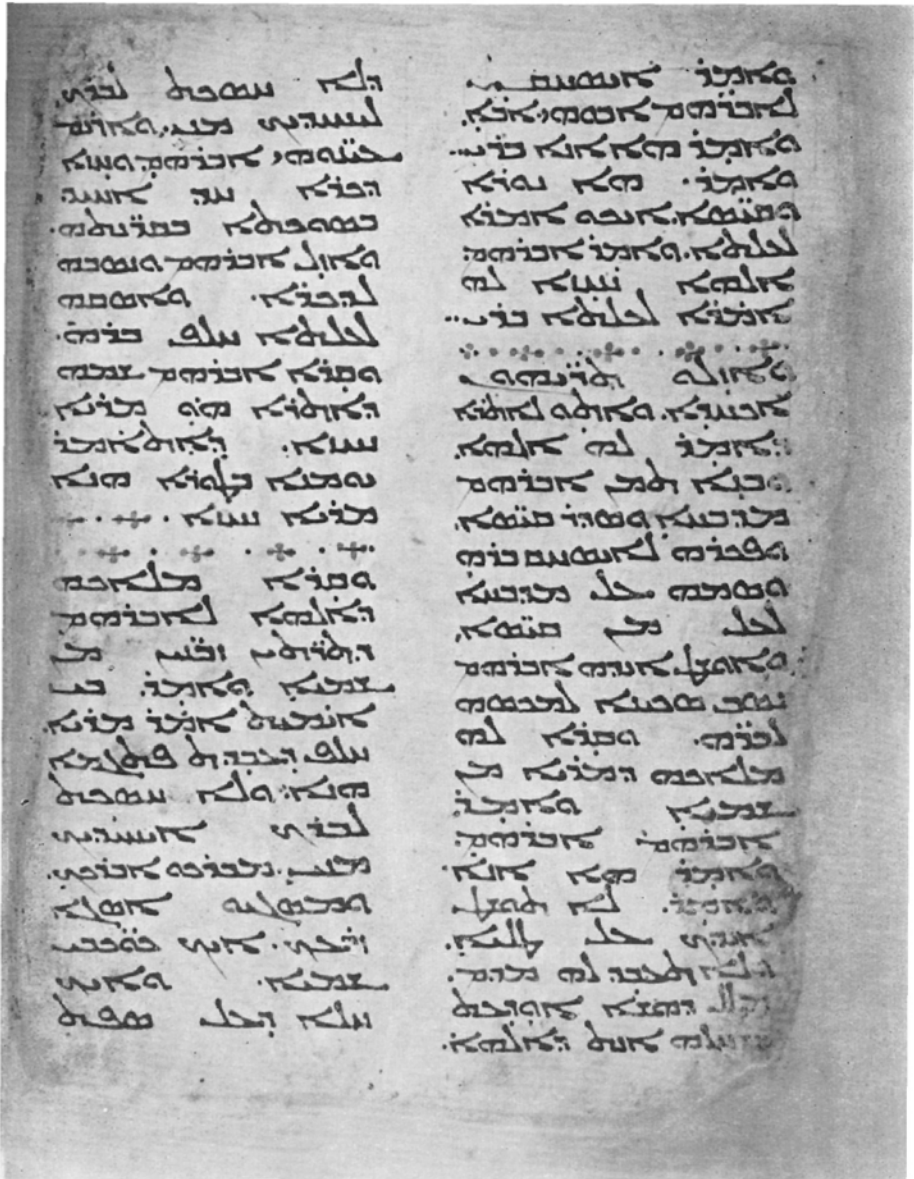 ܘܐܡܪ ܐܝܣܚܩ
ܠܐܒܪܗܡ ܐܒܘܗܝ ܐܒܐ.
ܘܐܡܪ ܗܐ ܐܢܐ ܒܪܝ.
ܘܐܡܪ. ܗܐ ܢܘܪܐ
ܘܩܝ̈ܣܐ. ܐܝܟܘ ܐܡܪܐ
ܠܥܠܬܐ. ܘܐܡܪ ܐܒܪܗܡ.
ܐܠܗܐ ܢܚܙܐ ܠܗ
ܐܡܪܐ ܠܥܠܬܐ ܒܪܝ.
ܘܐܙܠܘ ܬܪ̈ܝܗܘܢ
ܐܟܚܕܐ. ܘܐܬܘ ܠܐܬܪܐ
ܕܐܡܪ ܠܗ ܐܠܗܐ.
ܘܒܢܐ ܬܡܢ ܐܒܪܗܡ
ܡܕܒܚܐ ܘܣܕܪ ܩܝ̈ܣܐ.
ܘܦܟܪܗ ܠܐܝܣܚܩ ܒܪܗ
ܘܣܡܗ ܥܠ ܡܕܒܚܐ
ܠܥܠ ܡܢ ܩܝ̈ܣܐ.
ܘܐܘܫܛ ܐܝܕܗ ܐܒܪܗܡ
ܢܣܒ ܣܟܝܢܐ ܠܡܟܣܗ
ܠܒܪܗ. ܘܩܪܐ ܠܗ
ܡܠܐܟܗ ܕܡܪܝܐ ܡܢ
ܫܡܝܐ ܘܐܡܪ.
ܐܒܪܗܡ ܐܒܪܗܡ.
ܘܐܡܪ ܗܐ ܐܢܐ.
ܘܐܡܪ. ܠܐ ܬܘܫܛ
ܐܝܕܟ ܥܠ ܛܠܝܐ.
ܘܠܐ ܬܥܒܕ ܠܗ ܡܕܡ.
ܡܛܠ ܕܗܫܐ ܐܘܕܥܬ
ܕܕܚܠܗ ܐܢܬ ܕܐܠܗܐ.
ܘܠܐ ܚܣܟܬ ܠܒܪܟ
ܠܝܚܝܕܟ ܡܢܝ. ܘܐܪܝܡ
ܥܝܢ̈ܘܗܝ ܐܒܪܗܡ ܘܚܙܐ
ܕܟܪܐ ܚܕ ܐܚܝܕ
ܒܣܘܟܬܐ ܒܩܪ̈ܢܬܗ.
ܘܐܙܠ ܐܒܪܗܡ ܘܢܣܒܗ
ܠܕܟܪܐ. ܘܐܣܩܗ
ܠܥܠܬܐ ܚܠܦ ܒܪܗ.
ܘܩܪܐ ܐܒܪܗܡ ܫܡܗ
ܕܐܬܪܐ ܗܘ ܡܪܝܐ
ܢܚܙܐ. ܕܐܬܐܡܪ
ܝܘܡܢܐ ܒܛܘܪܐ ܗܢܐ
ܡܪܝܐ ܢܚܙܐ.
ܘܩܪܐ ܡܠܐܟܗ
ܕܐܠܗܐ ܠܐܒܪܗܡ
ܕܬܪ̈ܬܝܢ ܙܒ̈ܢܝܢ ܡܢ
ܫܡܝܐ ܘܐܡܪ. ܒܝ
ܐܝܡܝܬ ܐܡܪ ܡܪܝܐ.
ܚܠܦ ܕܥܒܕܬ ܦܬܓܡܐ
ܗܢܐ. ܘܠܐ ܚܣܟܬ
ܠܒܪܟ ܐܝܚܝܕܟ
ܡܢܝ. ܡܒܪܟܘ ܐܒܪܟܟ.
ܘܡܣܓܝܘ ܐܣܓܐ
ܙܪܥܟ. ܐܝܟ ܟܘ̈ܟܒܝ
ܫܡܝܐ. ܘܐܝܟ
ܚܠܐ ܕܥܠ ܣܦܬ